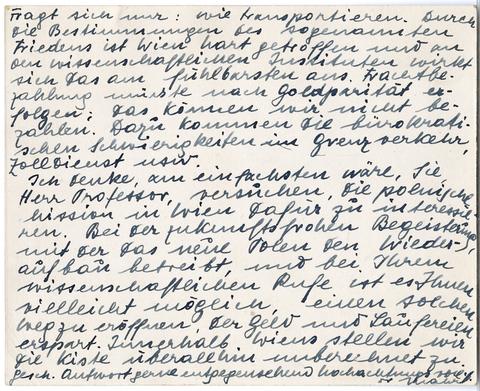 Fragt sich nur: wie transportieren. Durch
die Bestimmungen des sogenannten
Friedens ist Wien hart getroffen und an
den wissenschaftlichen Instituten wirkt
sich das am fühlbarsten aus. Frachtbe-
zahlung müsste nach Goldparität er-
folgen; das können wir nicht be-
zahlen. Dazu kommen die bürokrati-
schen Schwierigkeiten im Grenzverkehr,
Zolldienst usw.
Ich denke, am einfachsten wäre, Sie
Herr Professor, versuchen, die polnische
Mission in Wien dafür zu interessie-
ren. Bei der zukunftsfrohen Begeisterung,
mit der das neue Polen den Wieder-
aufbau betreibt, und bei Ihrem
wissenschaftlichen Rufe ist es Ihnen
vielleicht möglich, einen solchen
Weg zu eröffnen, der Geld und Laufereien
erspart. Innerhalb Wiens stellen wir
die Kiste überallhin unberechnet zu.
gesch. Antwort gerne entgegensehend hochachtungsvoll